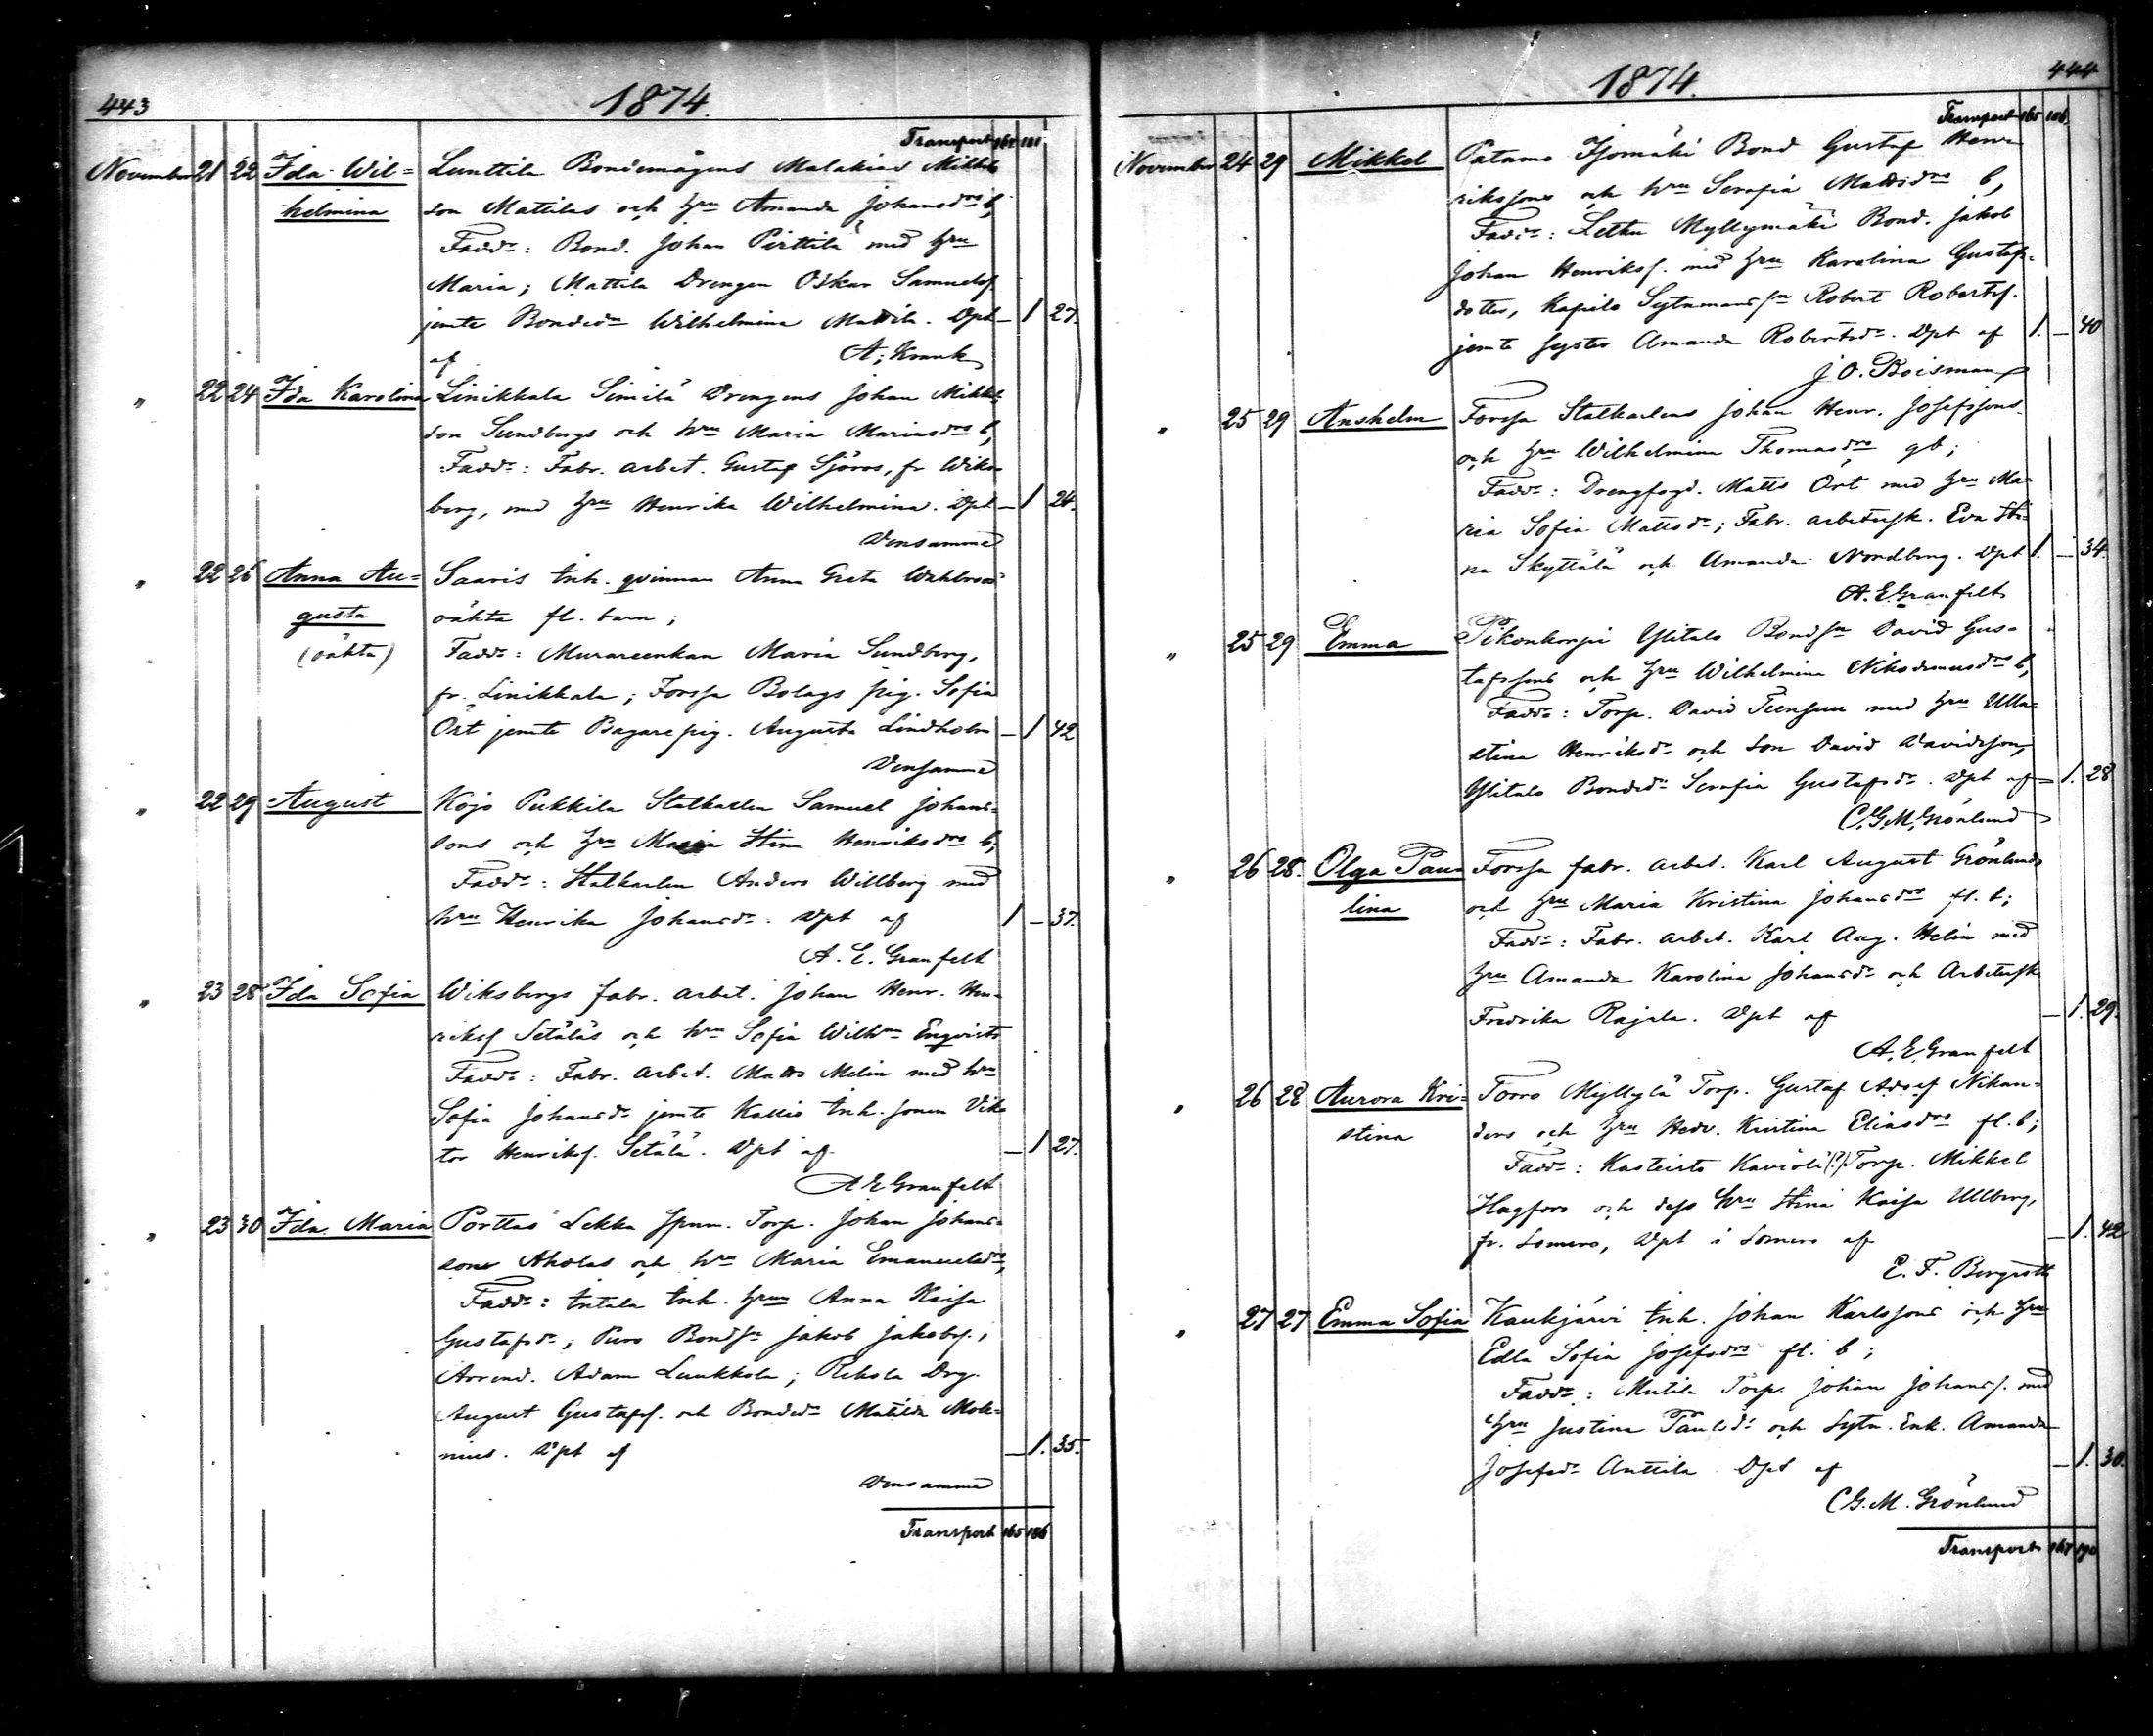 443
1874.
Transport 164 181
November 21 22 Ida Wil= Lunttila Bondemågens Malakias Mikkels
helmina son Mattilas och hru Amanda Johansdrs b;
Faddr: Bond. Johan Pirttilä med hru
Maria; Mattila Drengen Oskar Samuelsf.
jemte Bondedr Wilhelmina Mattila. Dpt — 1 27.
af A; Krank
" 22 24 Ida Karolina Linikkala Similä Drengens Johan Mikkels
son Sundbergs och hru Maria Mariasdrs b,
Faddr: Fabr. arbet. Gustaf Sjöros, fr Wiks=
berg, med hru Henrika Wilhelmina. Dpt — 1 24.
Densamme
" 22 26 Anna Au= Saaris Inh. qvinnan Anna Greta
gusta oäkta fl. barn;
(oäkta) Faddr: Murareenkan Maria Sundberg,
fr. Linikkala; Forssa Bolags pig. Sofia
Ört jemte Bagarepig. Augusta Lindholm — 1 42
Densamme
" 22 29 August Kojo Pukkila Statkarlen Samuel Johans=
sons och hru Maria Stina Henriksdrs b;
Faddr: Statkarlen Anders Willberg med
hru Henrika Johansdr. Dpt af 1 — 37.
A. E. Granfelt
" 23 28 Ida Sofia Wiksbergs fabr. arbet. Johan Henr. Hen=
riksf Setäläs och hru Sofia Wilhna Enqvists
Faddr: Fabr. arbet. Matts Melin med hru
Sofia Johansdr jemte Kallio Inh. sonen Vik=
tor Henriksf. Setälä. Dpt af — 1 27.
A E Granfelt
" 23 30 Ida Maria Porttas Lekka Spnn. Torp. Johan Johans=
sons Aholas och hru Maria Emanuelsdrs,
Faddr: Intala Inh. hrun Anna Kaisa
Gustafsdr; Puro Bondsn Jakob Jakobsf.;
Arrend. Adam Luukkola; Rekola Drg.
August Gustafsf. och Bondedr Matilda Mole=
nius. Dpt af — 1. 35.
Densamme
Transport 165 186
444
1874.
Transport 165 186
November 24 29 Mikkel Patamo Isomäki Bond Gustaf Hen=
rikssons och hru Serafia Mattsdrs b,
Faddr: Letku Myllymäki Bond. Jakob
Johan Henriksf. med hru Karolina Gustafs=
dotter, Kapilo Sytnmans sn Robert Robertsf.
jemte syster Amanda Robertsdr. Dpt af 1. — 40
J O. Boisman
" 25 29 Anshelm Forssa Statkarlens Johan Henr. Josefssons
och hru Wilhelmina Thomasdrs gb;
Faddr: Drengfogd. Matts Ört med hru Ma=
ria Sofia Mattsdr; Fabr. arbetersk. Eva Sti=
na Skyttälä och Amanda Nordberg. Dpt 1. — 34.
A. E. Granfelt
" 25 29 Emma Pikonkorpi Ylitalo Bondsn David Gus=
tafssons och hru Wilhelmina Nikodemusdrs b,
Faddr: Torp. David Teensuu med hru Ulla=
stina Henriksdr och son David Davidsson,
Ylitalo Bondedr Serafia Gustafsdr. Dpt af — 1. 28
C. G. M. Grönlund
" 26 28. Olga Pau= Forssa fabr. arbet. Karl August Grönlunds
lina och hru Maria Kristina Johansdrs fl. b;
Faddr: Fabr. arbet. Karl Aug. Helin med
hru Amanda Karolina Johansdr och Arbetersk
Fredrika Rajala. Dpt af — 1. 29.
A. E. Granfelt
" 26 28 Aurora Kri= Torro Myllylä Torp. Gustaf Adolf Nikan=
stina ders och hru Hedv. Kristina Eliasdrs fl. b;
Faddr: Kasteisto Kavioli (?) Torp. Mikkel
Hagfors och dess hru Stina Kaisa Ullberg,
fr. Somero, Dpt i Somero af — 1. 42
E. F. Bergroth
" 27 27 Emma Sofia Kaukjärvi Inh. Johan Karlssons och hru
Edla Sofia Josefsdrs fl. b;
Faddr: Mutila Torp. Johan Johansf. med
hru Justina Paulsdr och Sytn. Enk. Amanda
Josefsdr Anttila Dpt af — 1. 30.
C G. M. Grönlund
Transport 167 190